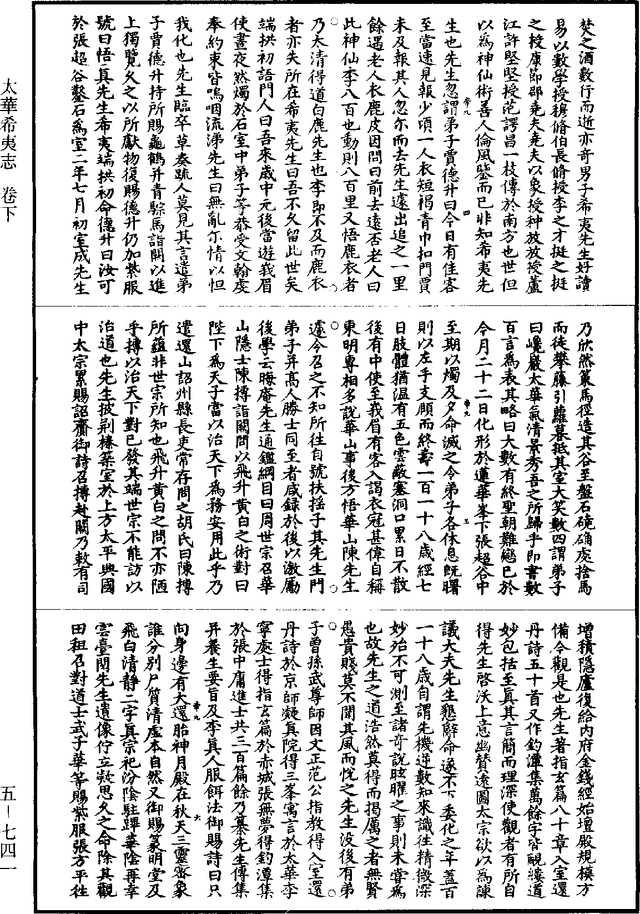 太華希夷志 卷下
五-七四一
焚之酒數行而逝亦奇男子希夷先生好讀
易以數學授穆脩伯長脩授李之才挺之挺
之授康節卲堯夫堯夫以象授种放放授盧
江許堅堅授范諤昌一枝傳於南方也世但
以為神仙術善人倫風鑒而已非知希夷先
帝九 四
生也先生忽謂弟子賈德升曰今日有佳客
至當速見報少頃一人衣短褐青巾扣門賈
未及報其人忽尒而去先生遽出追之一里
餘遇老人衣鹿皮因問曰前去遠否老人曰
此神仙李八百也動則八百里又悟鹿衣者
乃太清得道白鹿先生也李即不及而鹿衣
者亦失所在希夷先生曰吾不久留此世矣
端拱初語門人曰吾來歲中元後當遊峩眉
使晝夜然燭於石室中弟子等恭受文翰處
奉約束皆嗚咽流涕先生曰無亂尒情以怛
我化也先生臨卒草奏疏人莫見其言遺弟
子賈德升持所賜龜鶴幷青騘馬詣闕以進
上獨覽久之以所獻物復賜德升仍加紫服
號曰悟真先生希夷端拱初命德升曰汝可
於張超谷鑿石為室二年七月初室成先生
乃欣然策馬徑造其谷至盤石磽确處捨馬
而徒攀藤引蘿暮抵其室大笑數四謂弟子
曰巉巖太華氣清景秀吾之所歸乎即書數
百言為表其略曰大數有終聖朝難戀已於
今月二十二日化形於蓮華峯下張超谷中
帝九 五
至期以燭及夕命滅之令弟子各休息既曙
則以左手支頤而終壽一百一十八歲經七
日肢體猶溫有五色雲蔽塞洞口累日不散
後有中使至峩眉有客入謁衣冠甚偉自稱
東明專相多說華山事後方悟華山陳先生
遽令召之不知所往自號扶搖子其先生門
弟子幷高人勝士同至者咸錄於後以激勵
後學云晦庵先生通鑑綱目曰周世宗召華
山隱士陳摶詣闕問以飛升黄白之術對曰
陛下為天子當以治天下為務安用此乎乃
遣還山詔州縣長吏常存問之胡氏曰陳摶
所蘊非世宗所知也飛升黄白之問不亦陋
乎摶以治天下對已發其端世宗不能訪以
治道也先生披荆榛築室於上方太平興國
中太宗累賜詔齎御詩召摶赴闕乃敕有司
增積隱廬復給内府金錢經始壇殿規模方
備令觀是也先生著指玄篇八十章入室還
丹詩五十首又作釣潭集萬餘字皆覼縷道
妙包括至真其言簡而理深使觀者有所自
得先生啓沃上意幽賛遠圖太宗欲以為諫
議大夫先生懇辭命遂不下委化之年蓋百
一十八歲自謂先機逆數知來識往精微深
妙殆不可測至諸奇說眩曜之事則未甞為
也故先生之道浩然莫得而揭厲之者無賢
愚貴賤莫不聞其風而恱之先生没後有弟
子曾孫武尊師因文正范公指教得入室還
丹詩於京師凝真院得三峯寓言於太華李
寧處士得指玄篇於赤城張無夢得釣潭集
於張中庸進士共三百篇餘乃綦先生傳集
幷養生要旨及李真人服餌法御賜詩曰只
帝九 六
向身邊有大還胎神月殿在秋天三靈密象
誰分別尸質清虛本自然又御賜篆明堂及
飛白清静二字真宗祀汾隂駐蹕華隂再幸
雲臺閣先生遺像佇立欷思久之命除其觀
田租召對道士武子華等賜紫服張方平往